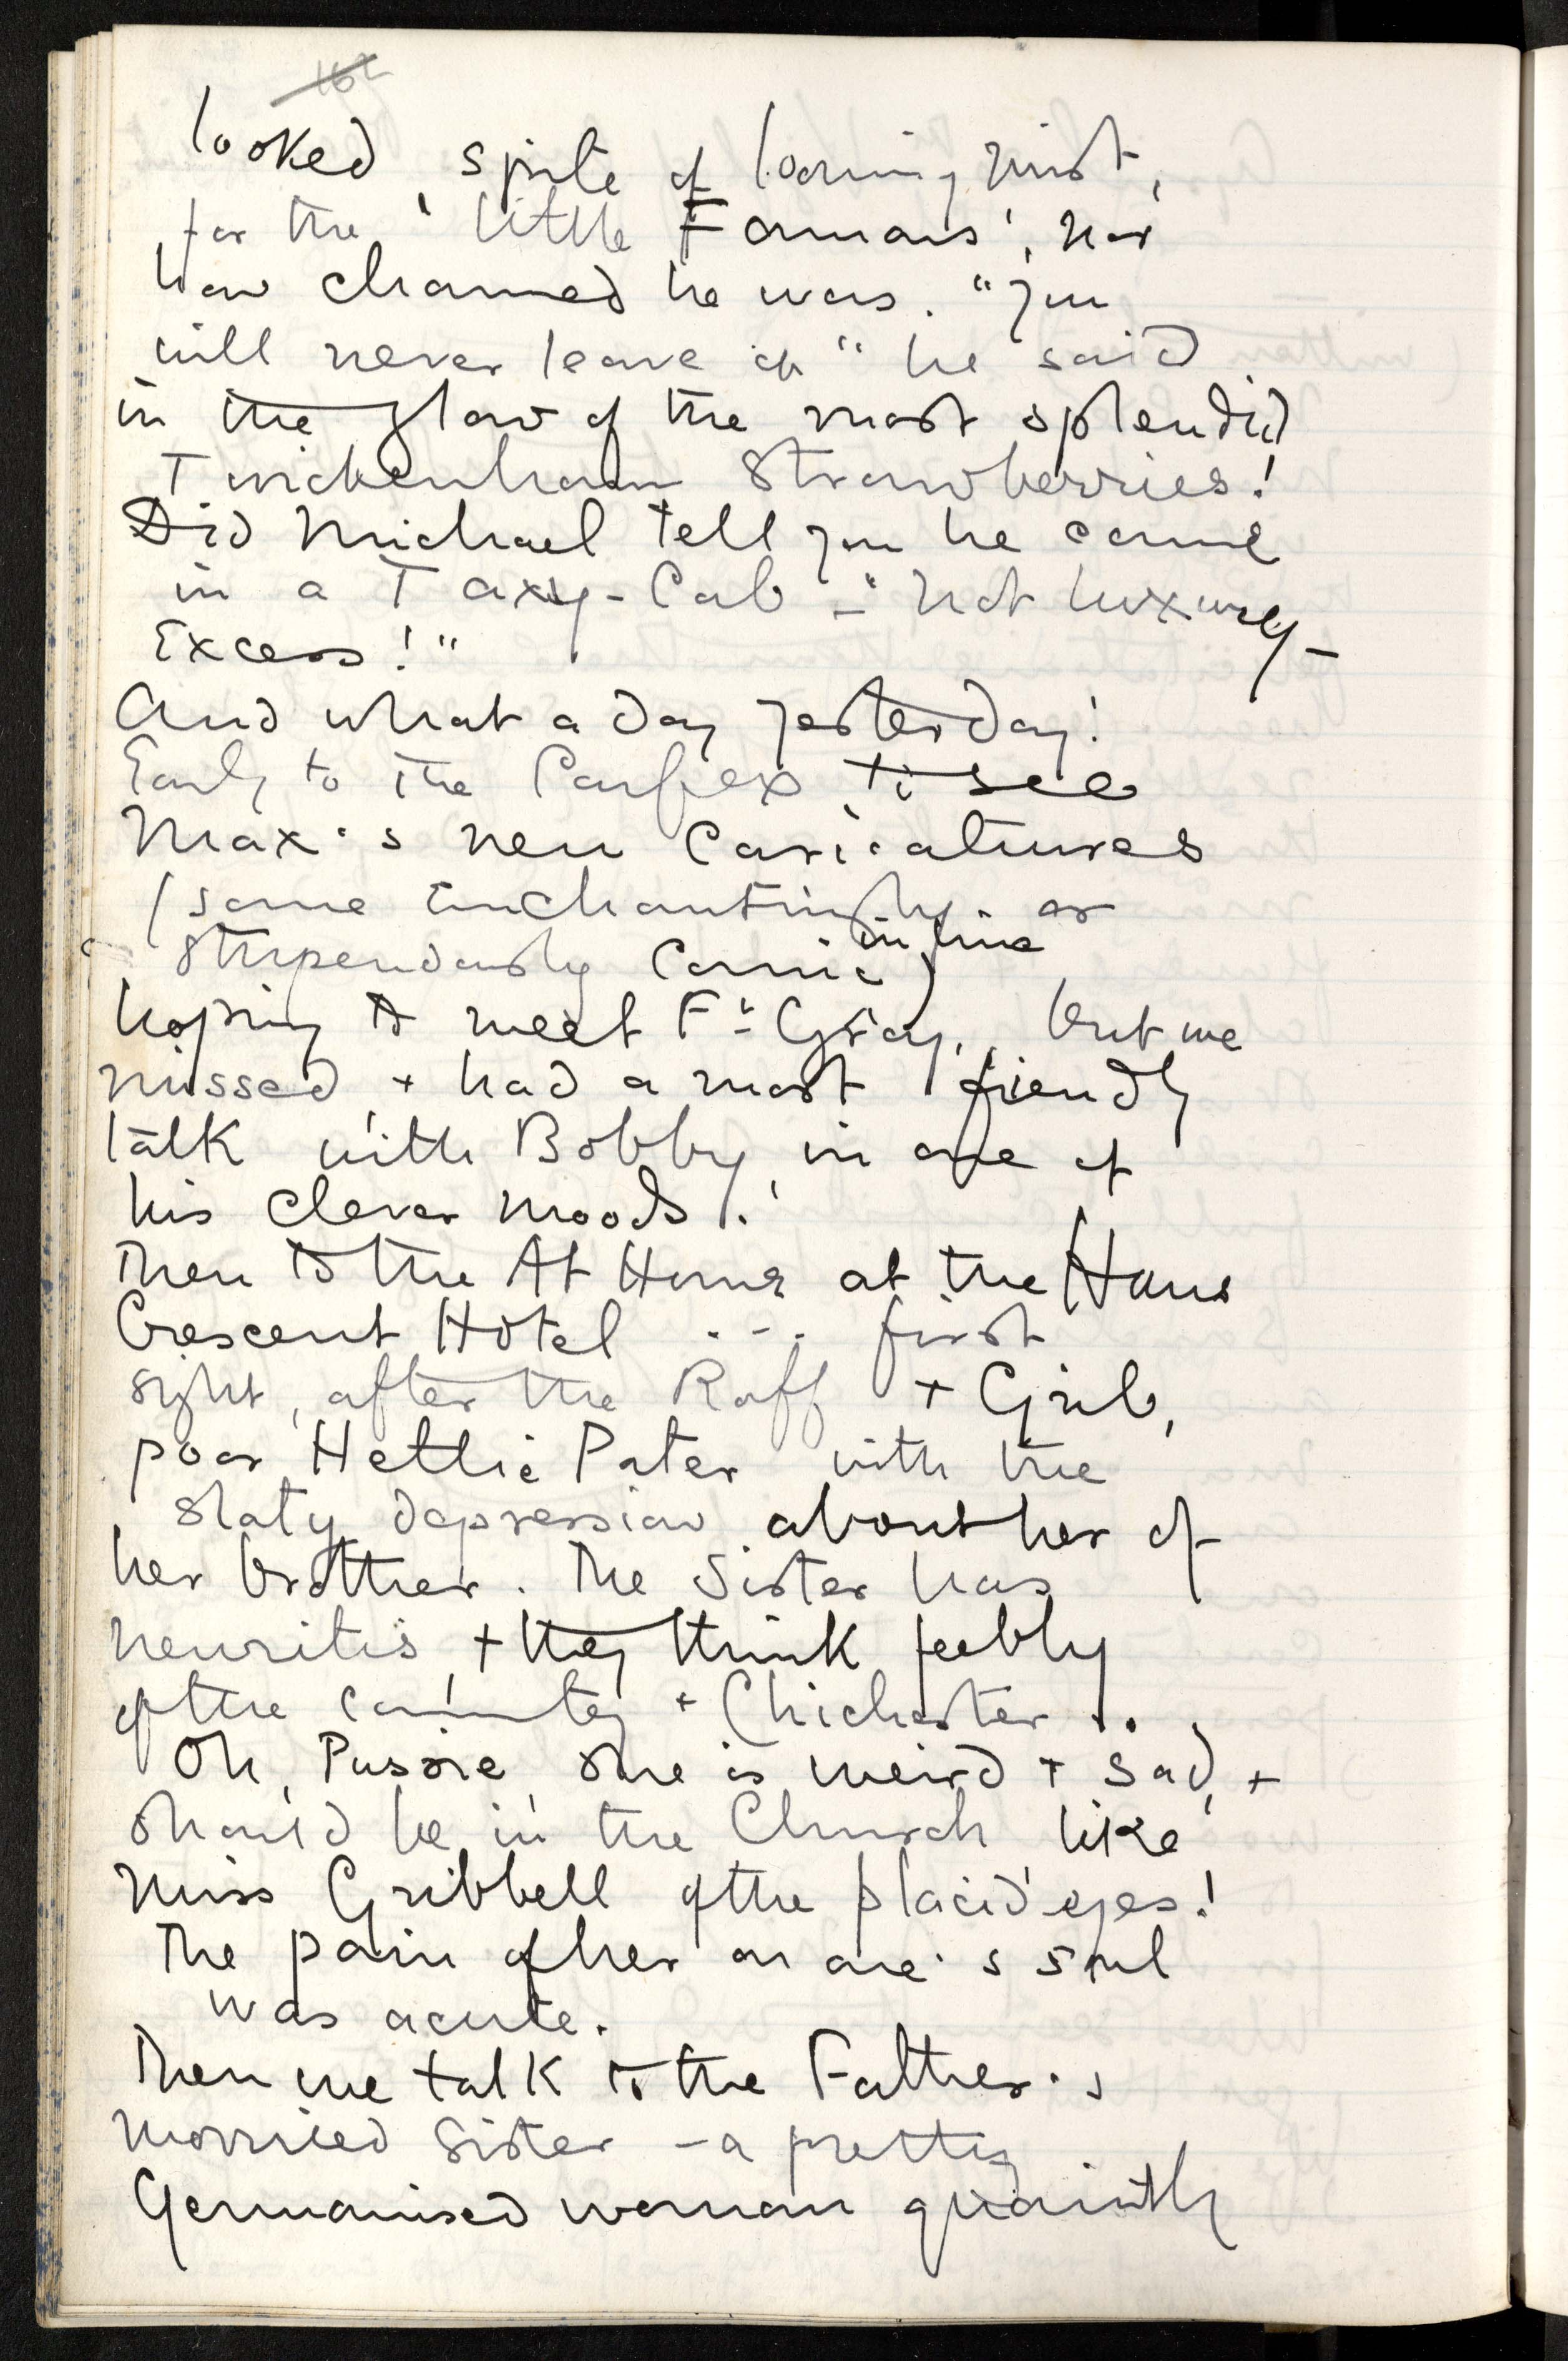 162
looked, spite of loaming mist,
for the 'little Famous', nor
how charmed he was. "You
will never leave it" he said
in the glow of the most splendid
Twickenham Strawberries!
Did Michael tell you he came
in a Taxy-Cab – "Not luxury –
Excess!"
And what a day yesterday!
Early to the Carfax to see
Max's new Caricatures
(some enchantingly or
stupendously comic in line)
hoping to meet Fr Gray, but we
missed + had a most friendly
talk with Bobby, in one of
his clever moods.
Then to the At Home at the Hans
Crescent Hotel ... first
sight, after the Raff + Grib,
poor Hettie Pater with the
slaty depression about her of
her brother. The Sister has
neuritis + they think feebly
of the country + Chichester ..
Oh, Pussie she is weird + sad, +
should be in the Church like
Miss Gribbell of the placid eyes!
The pain of her on one's soul
was acute.
Then we talk to the Father's
married Sister – a pretty
Germanised woman quaintly